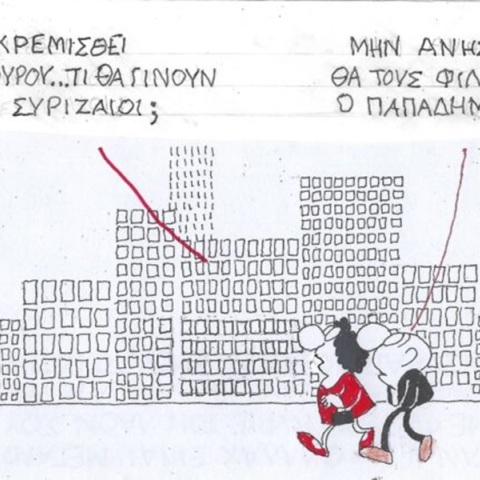 ΚΡΕΜΙΣΘΕΙ
ΥΡΟΥ...ΤΙ ΘΑ ΓΙΝΟΥΝ
ΣΥΡΙΖΑΙΟΙ;
ΜΗΝ ΑΝΗΣ
ΘΑ ΤΟΥΣ ΦΙΛ
Ο ΠΑΠΑΔΗΜ